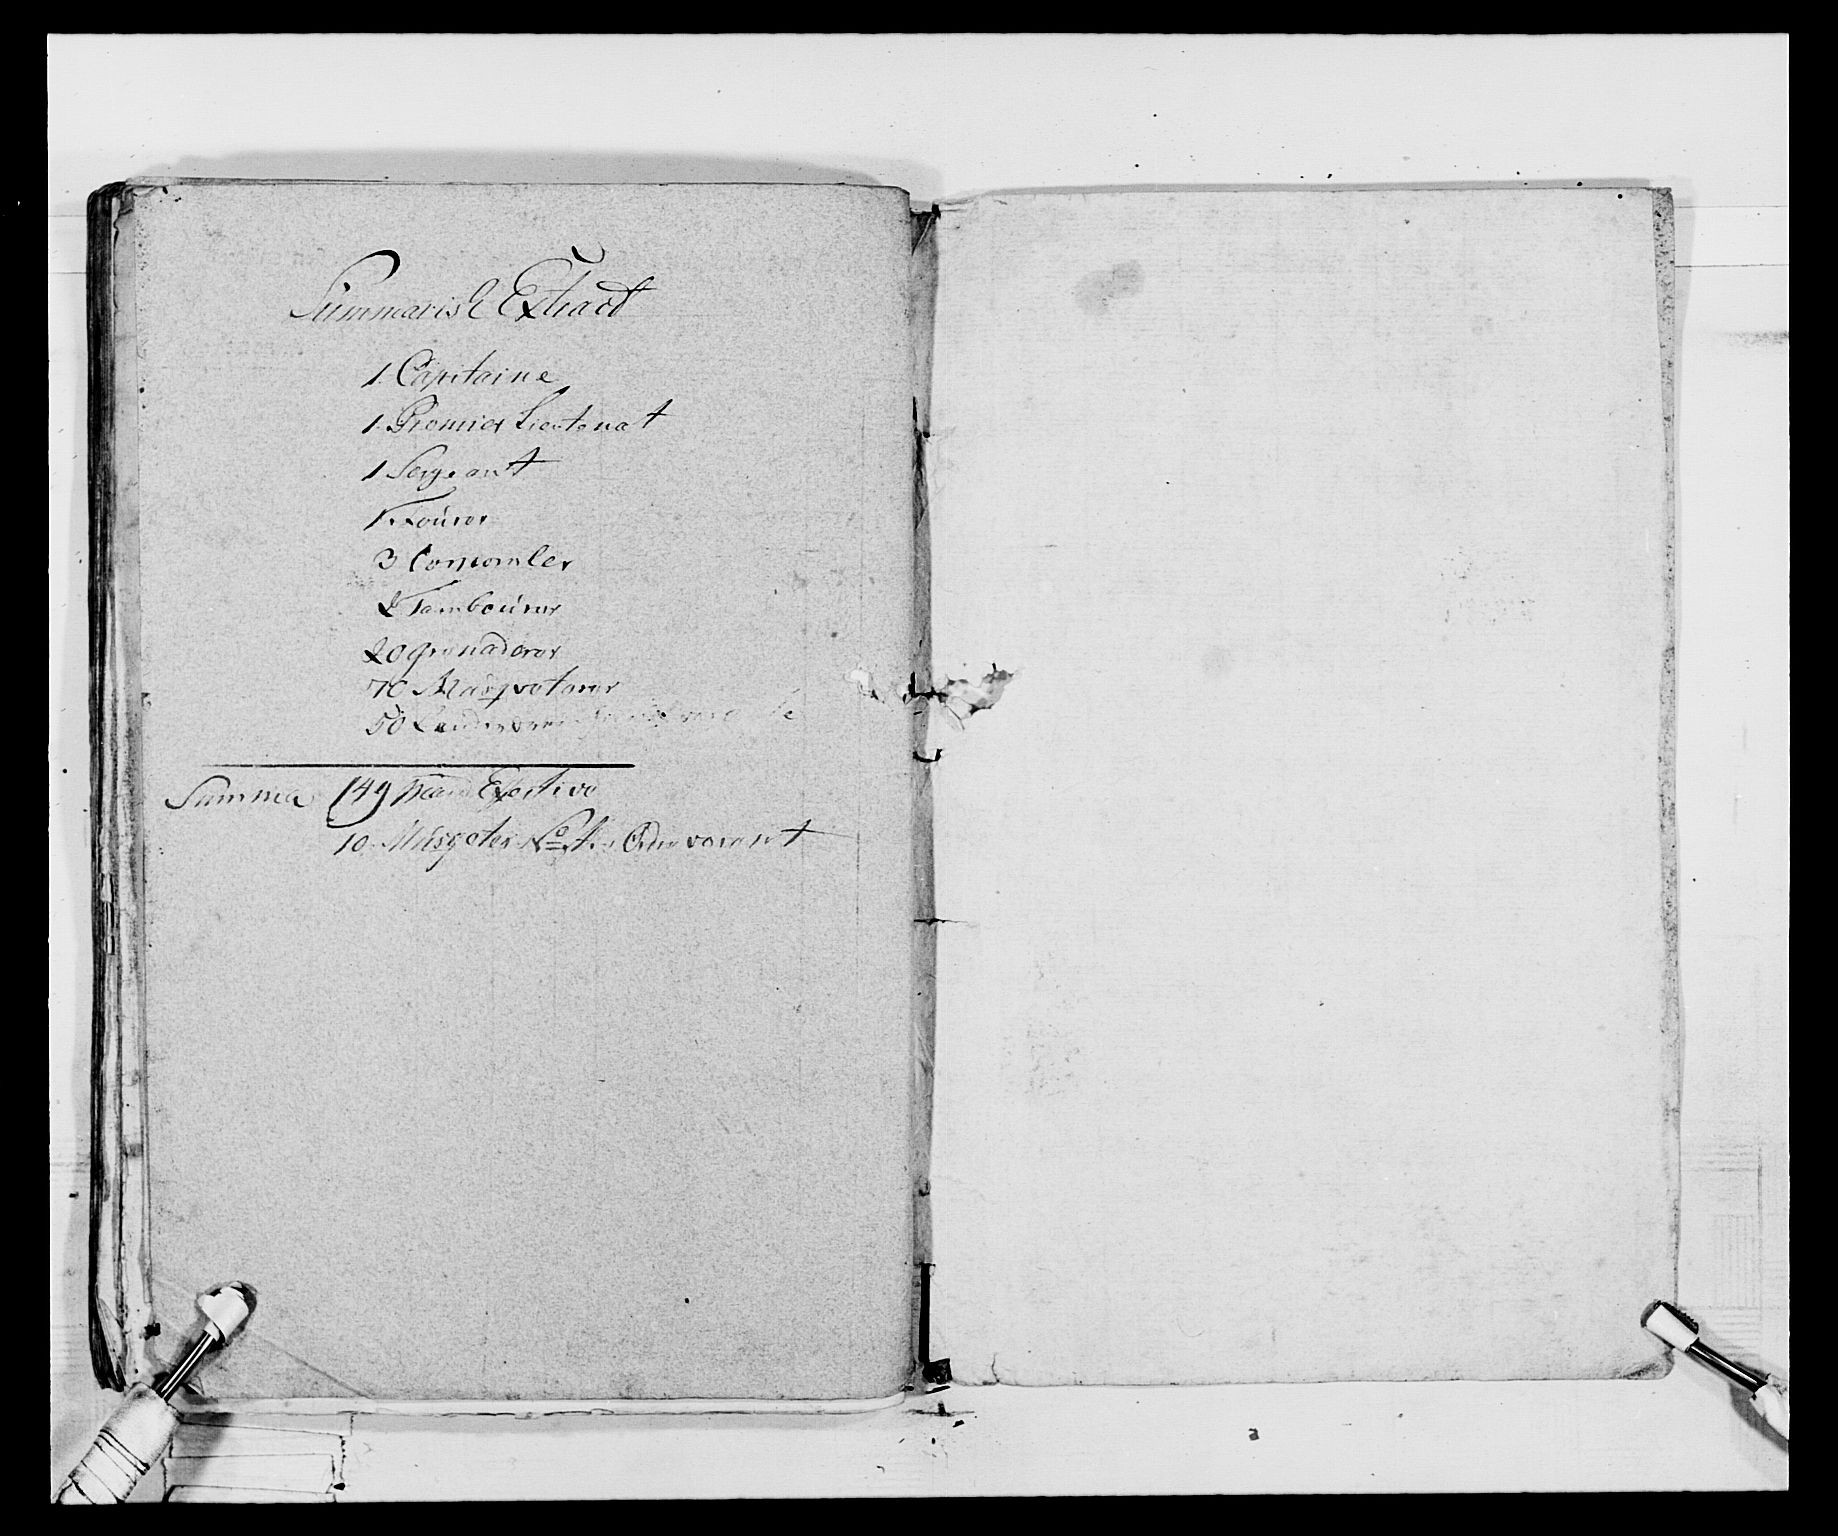 Summarisk Extract
1. Capitaine
1. Premier Lieutenat
1 Sergeant
1. Fourer
3 Corporaler
2 Tambourer
20 Grenaderer
70 Musqveterer
50 Landeværn
Summa 149 Mand Efective
10. Musqeter No